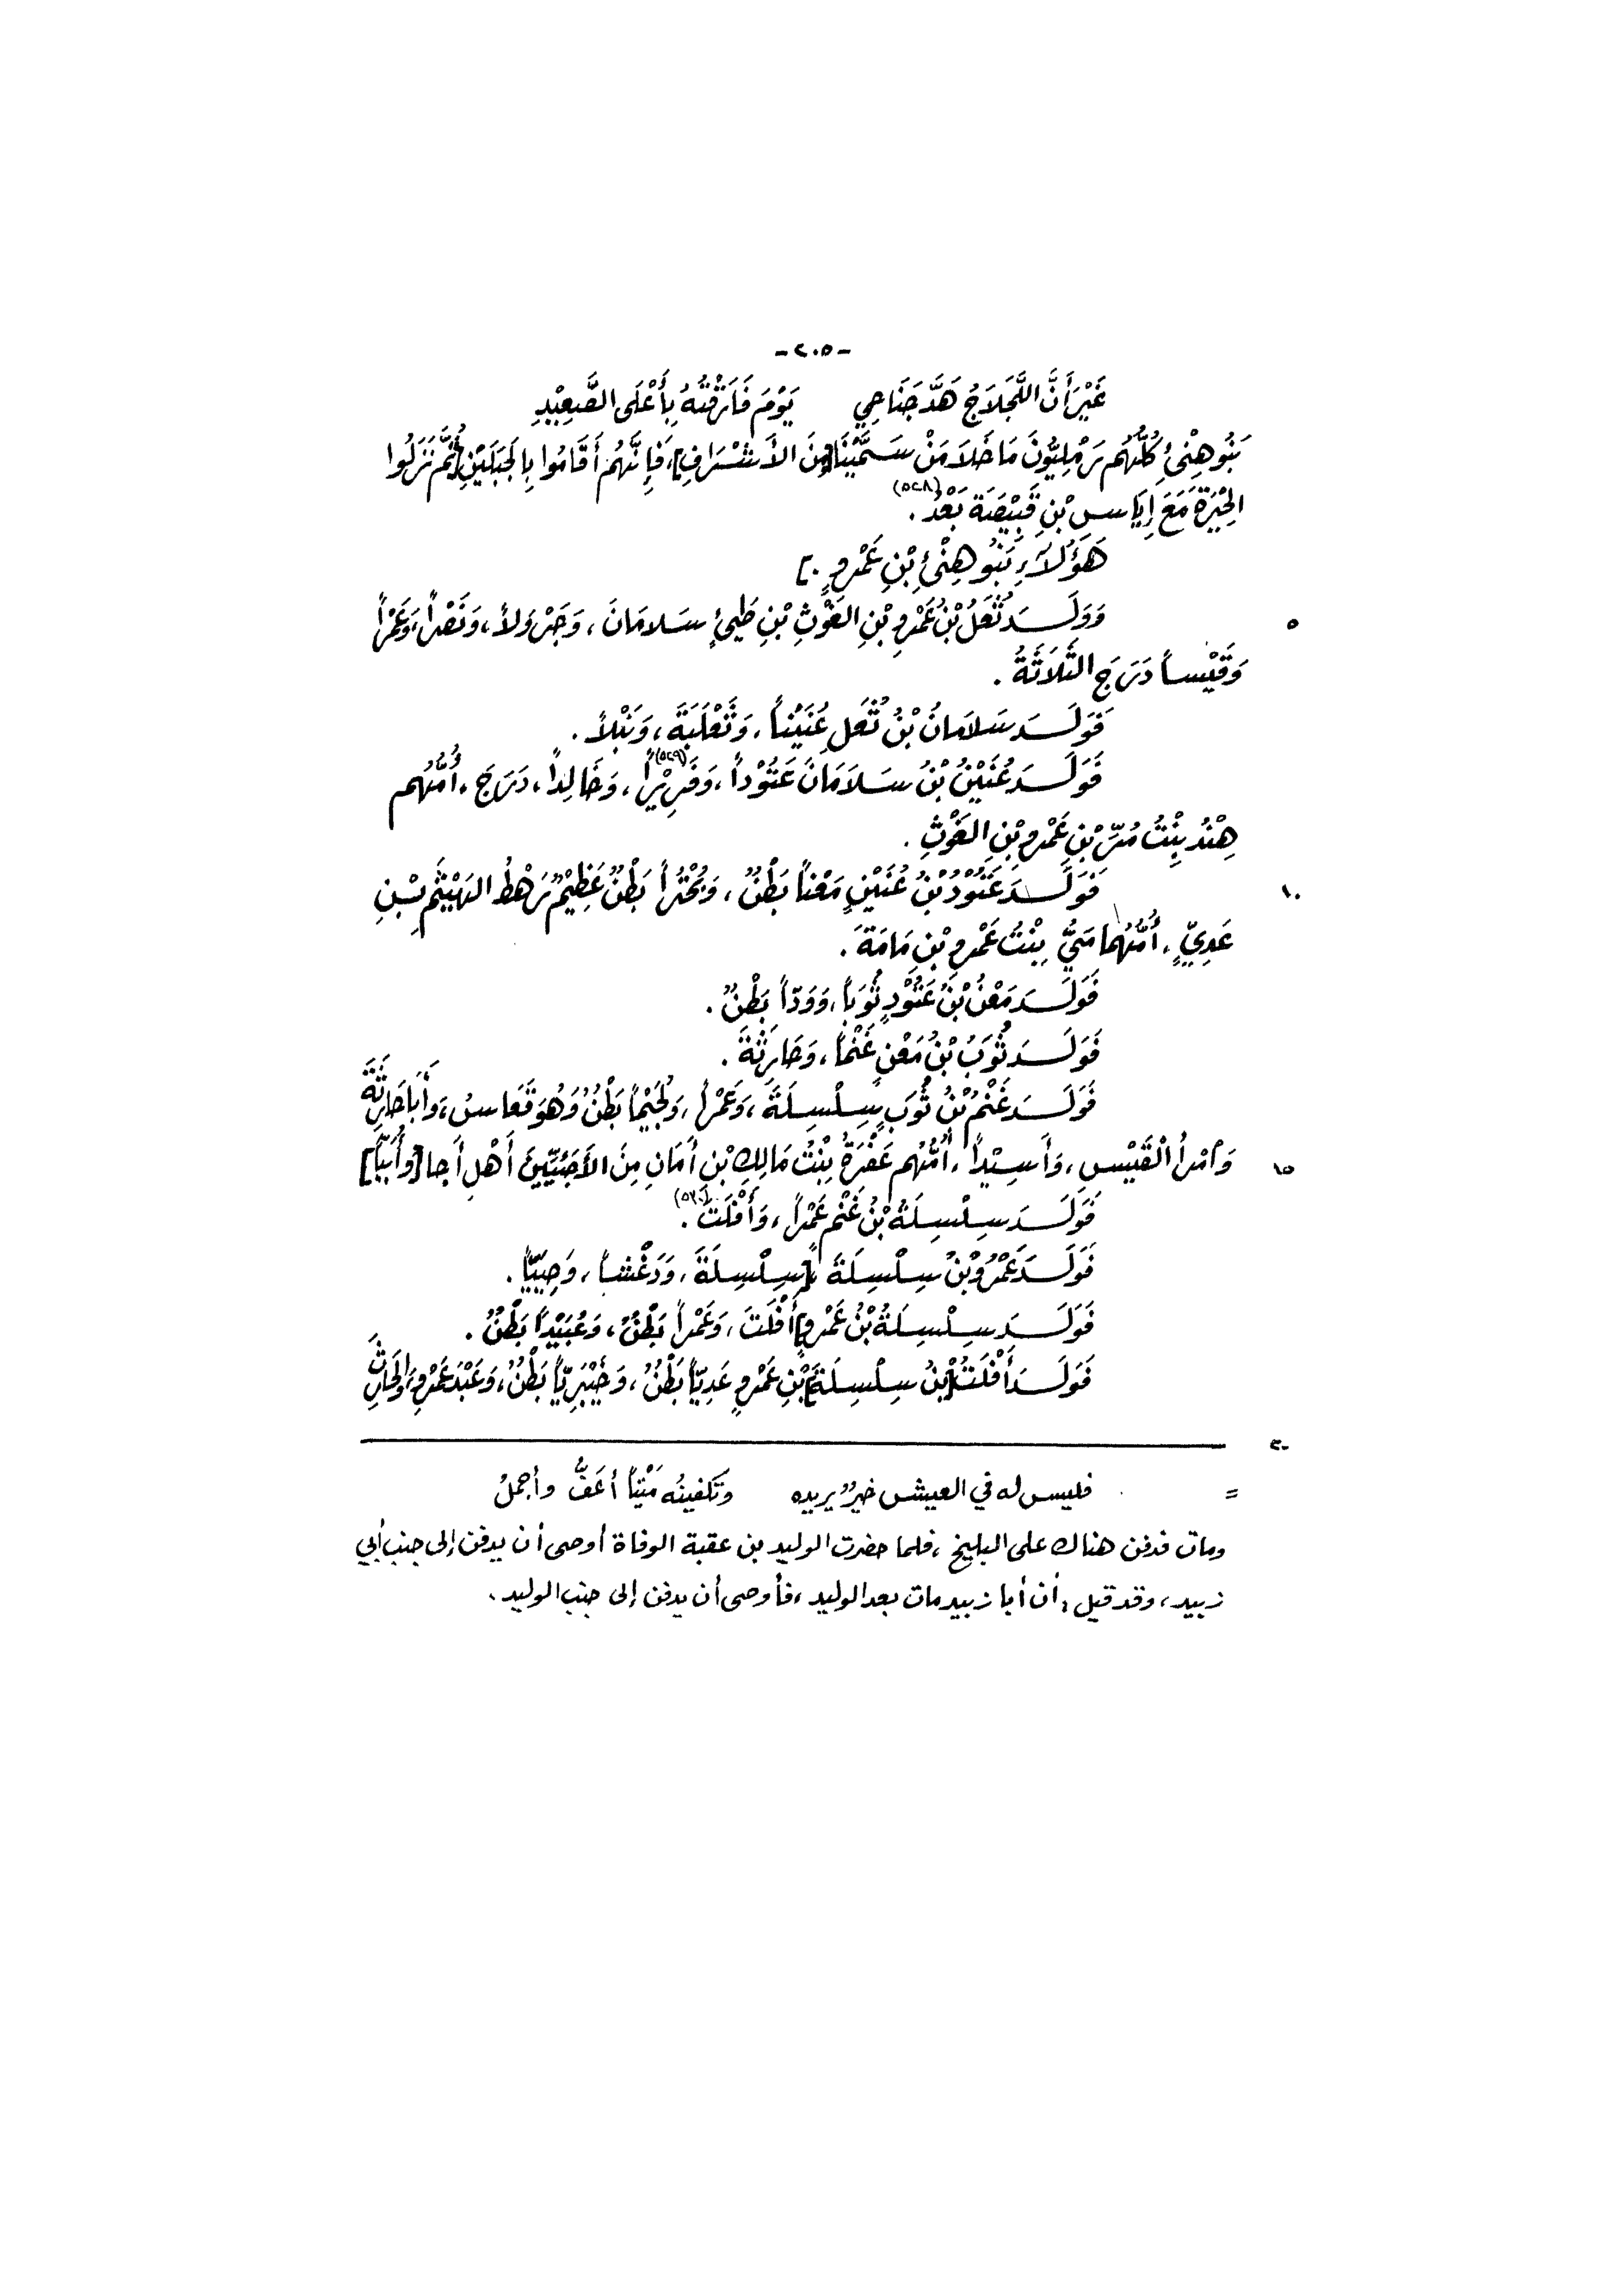 -٢٠٥-
غَيْرَ أَنَّ اللَّجْلَاجَ هَدَّ جَنَاحِي يَوْمَ فَارَقْتُهُ بِأَعْلَى الصَّعِيْدِ
بَنُو هِنْئٍ كُلُّهُم رَمْلِيُّونَ مَا خَلاَ مَنْ سَمَّيْنَا [مِنَ الأَشْرَافِ]، فَإِنَّهُم أَقَامُوا بِالجَبَلَيْنِ [ثُمَّ نَزَلُوا
الحِيْرَةَ مَعَ إِيَاسِ بْنِ قَبِيْصَةَ بَعْدُ (٥٢٨).
هَؤُلاَءِ بَنُو هِنْئِ بْنِ عَمْرٍو.]
وَوَلَدَ ثُعَلُ بْنُ عَمْرِو بْنِ الغَوْثِ بْنِ طَيِّئٍ سَلامَانَ، وَجَرْوَلاً، وَنَصْراً، وَعَمْراً ٥
وَقَيْساً دَرَجَ الثَّلَاثَةُ.
فَوَلَدَ سَلامَانُ بْنُ ثُعَلِ عُنَيْناً، وَثَعْلَبَةَ، وَنَبْلاً.
فَوَلَدَ عُنَيْنُ بْنُ سَلاَمَانَ عَتُوْداً، وَفَرِيْراً (٥٢٩)، وَخَالِداً، دَرَجَ، أُمُّهُم
هِنْدُ بِنْتُ مُرِّ بْنِ عَمْرِو بْنِ الغَوْثِ.
فَوَلَدَ عَتُوْدُ بْنُ عُنَيْنٍ مَعْناً بَطْنٌ، وَبُحْتُراً بَطْنٌ عَظِيْمٌ رَهْطُ الهَيْثَمِ بْنِ ١٠
عَدِيٍّ، أُمُّهُمَا مَيُّ بِنْتُ عَمْرِو بْنِ مَامَةَ.
فَوَلَدَ مَعْنُ بْنُ عَتُوْدٍ ثُوَباً، وَوَدّاً بَطْنٌ.
فَوَلَدَ ثُوَبُ بْنُ مَعْنٍ غَنْماً، وَحَارِثَةَ.
فَوَلَدَ غَنْمُ بْنُ ثُوَبٍ سِلْسِلَةَ، وَعَمْراً، وَلُجَيْماً بَطْنٌ وَهُوَ قَعَاسٌ، وَأَبَا حَارِثَةَ
وَامْرأَ القَيْسِ، وَأَسِيْداً، أُمُّهُم عَفْرَةُ بِنْتُ مَالِكِ بْنِ أَمَانِ مِنَ الأَجَئِيِّيْنَ أَهْلِ أَجَا [وأُبَيّاً] ١٥
فَوَلَدَ سِلْسِلَةُ بْنُ غَنْمٍ عَمْراً، وَأَفْلَتَ (٥٣٠).
فَوَلَدَ عَمْرُو بْنُ سِلْسِلَةَ [سِلْسِلَةَ، وَدَغْشاً، وَحِيَيّاً.
فَوَلَدَ سِلْسِلَةُ بْنُ عَمْرٍو] أَفْلَتَ، وَعَمْراً بَطْنٌ، وَعُبَيْداً بَطْنٌ.
فَوَلَدَ أَفْلَتُ [بْنُ سِلْسِلَةَ] بْنِ عَمْرٍو عَدِيّاً بَطْنٌ، وَخَيْبَرِيّاً بَطْنٌ، وَعَبْدَ عَمْرٍو، وَالحَارِثَ
٢٠
= فليس له في العيش خيرٌ يريده وتكفينُه مَيْتاً أعَفُّ وأجملُ
ومات فدفن هناك على البليخ، فلما حضرت الوليد بن عقبة الوفاة أوصى أن يدفن إلى جنب أبي
زبيد، وقد قيل: أن أبا زبيد مات بعد الوليد، فأوصى أن يدفن إلى جنب الوليد.